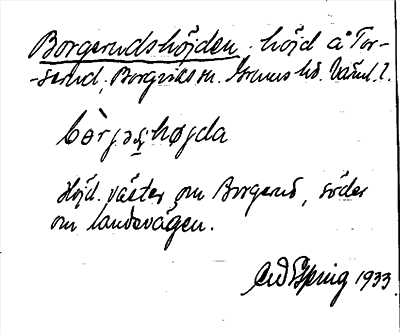 Borgerudshöjden, höjd å Tor-
-serud, Borgviks sn. Grums hd. Värml. l.
bòrjəʂhøjda
Höjd väster om Borgerud, söder
om landsvägen.
1933